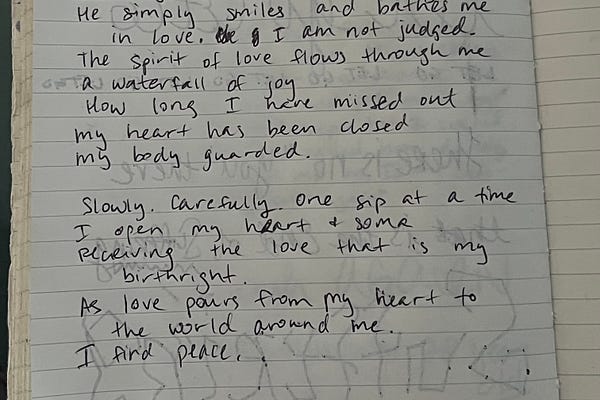 He simply smiles and bathes me
in love. I am not judged.
The spirit of love flows through me
a waterfall of joy
How long I have missed out
my heart has been closed
my body guarded.
Slowly. Carefully. One sip at a time
I open my heart & soma
receiving the love that is my
birthright.
As love pours from my heart to
the world around me.
I find peace.